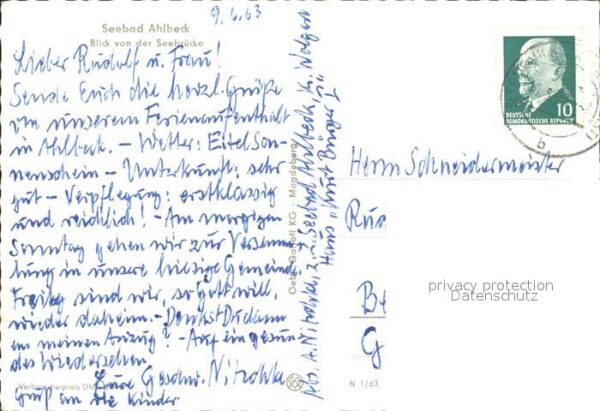 9.6.63
Seebad Ahlbeck
Blick von der Seebrücke
Lieber Rudolf u. Frau!
Sende Euch die herzl. Grüße
von unserem Ferienaufenthalt
in Ahlbeck. – Wetter: Eitel Son-
nenschein – Unterkunft: sehr
gut – Verpflegung: erstklassig
und reichlich! – Am morgigen
Sonntag gehen wir zur Versamm-
lung in unsere hiesige Gemeinde.
Freitag sind wir, so Gott will,
wieder daheim. – Denkst Du dann
an meinen Anzug? – Auf ein gesun-
des Wiedersehen
Eure Geschw. Nitzohla
Gruß an die Kinder
Verbraucherpreis DM
Gebr. Garloff KG · Magdeburg
Abs. A. Nitzohla, z. Z. Seebad Ahlbeck, Kr. Wolgast
Haus "Kurt Bürger I"
10
DEUTSCHE
DEMOKRATISCHE REPUBLIK
b
Herrn Schneidermeister
Ru
B
G
privacy protection
Datenschutz
N 1/63